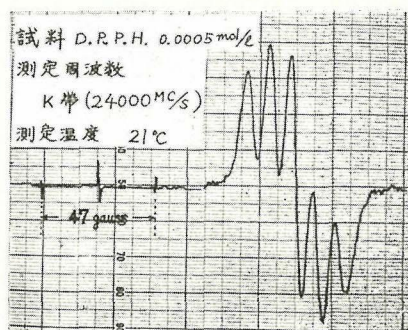 試料 D.P.P.H. 0.0005 mol/ℓ
測定周波数
K 帯 (24000 MC/s)
測定温度 21℃
50
47 gauss
70
80
90